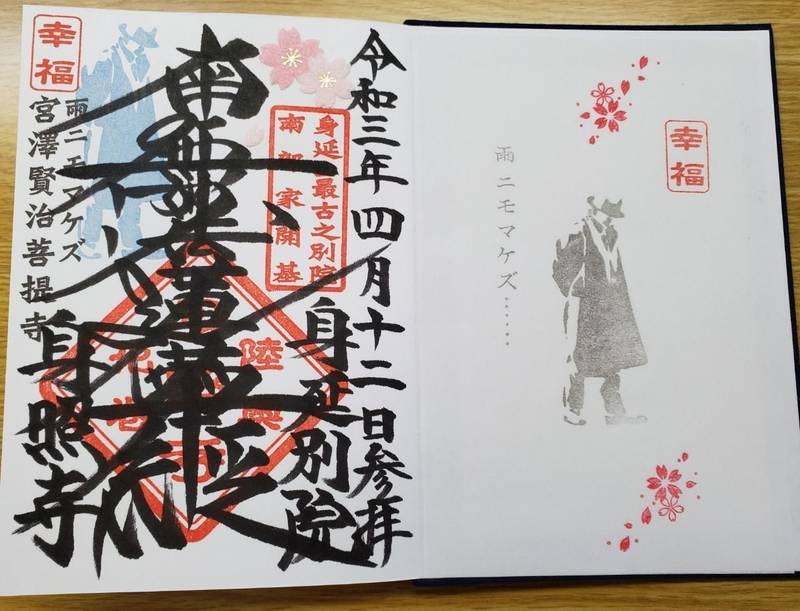 令和三年四月十二日参拝
身延最古之別院
南部家開基
身延別院
南無妙法蓮華経
陸奥
花巻
幸福
雨ニモマケズ
宮澤賢治菩提寺
身照寺
幸福
雨ニモマケズ……